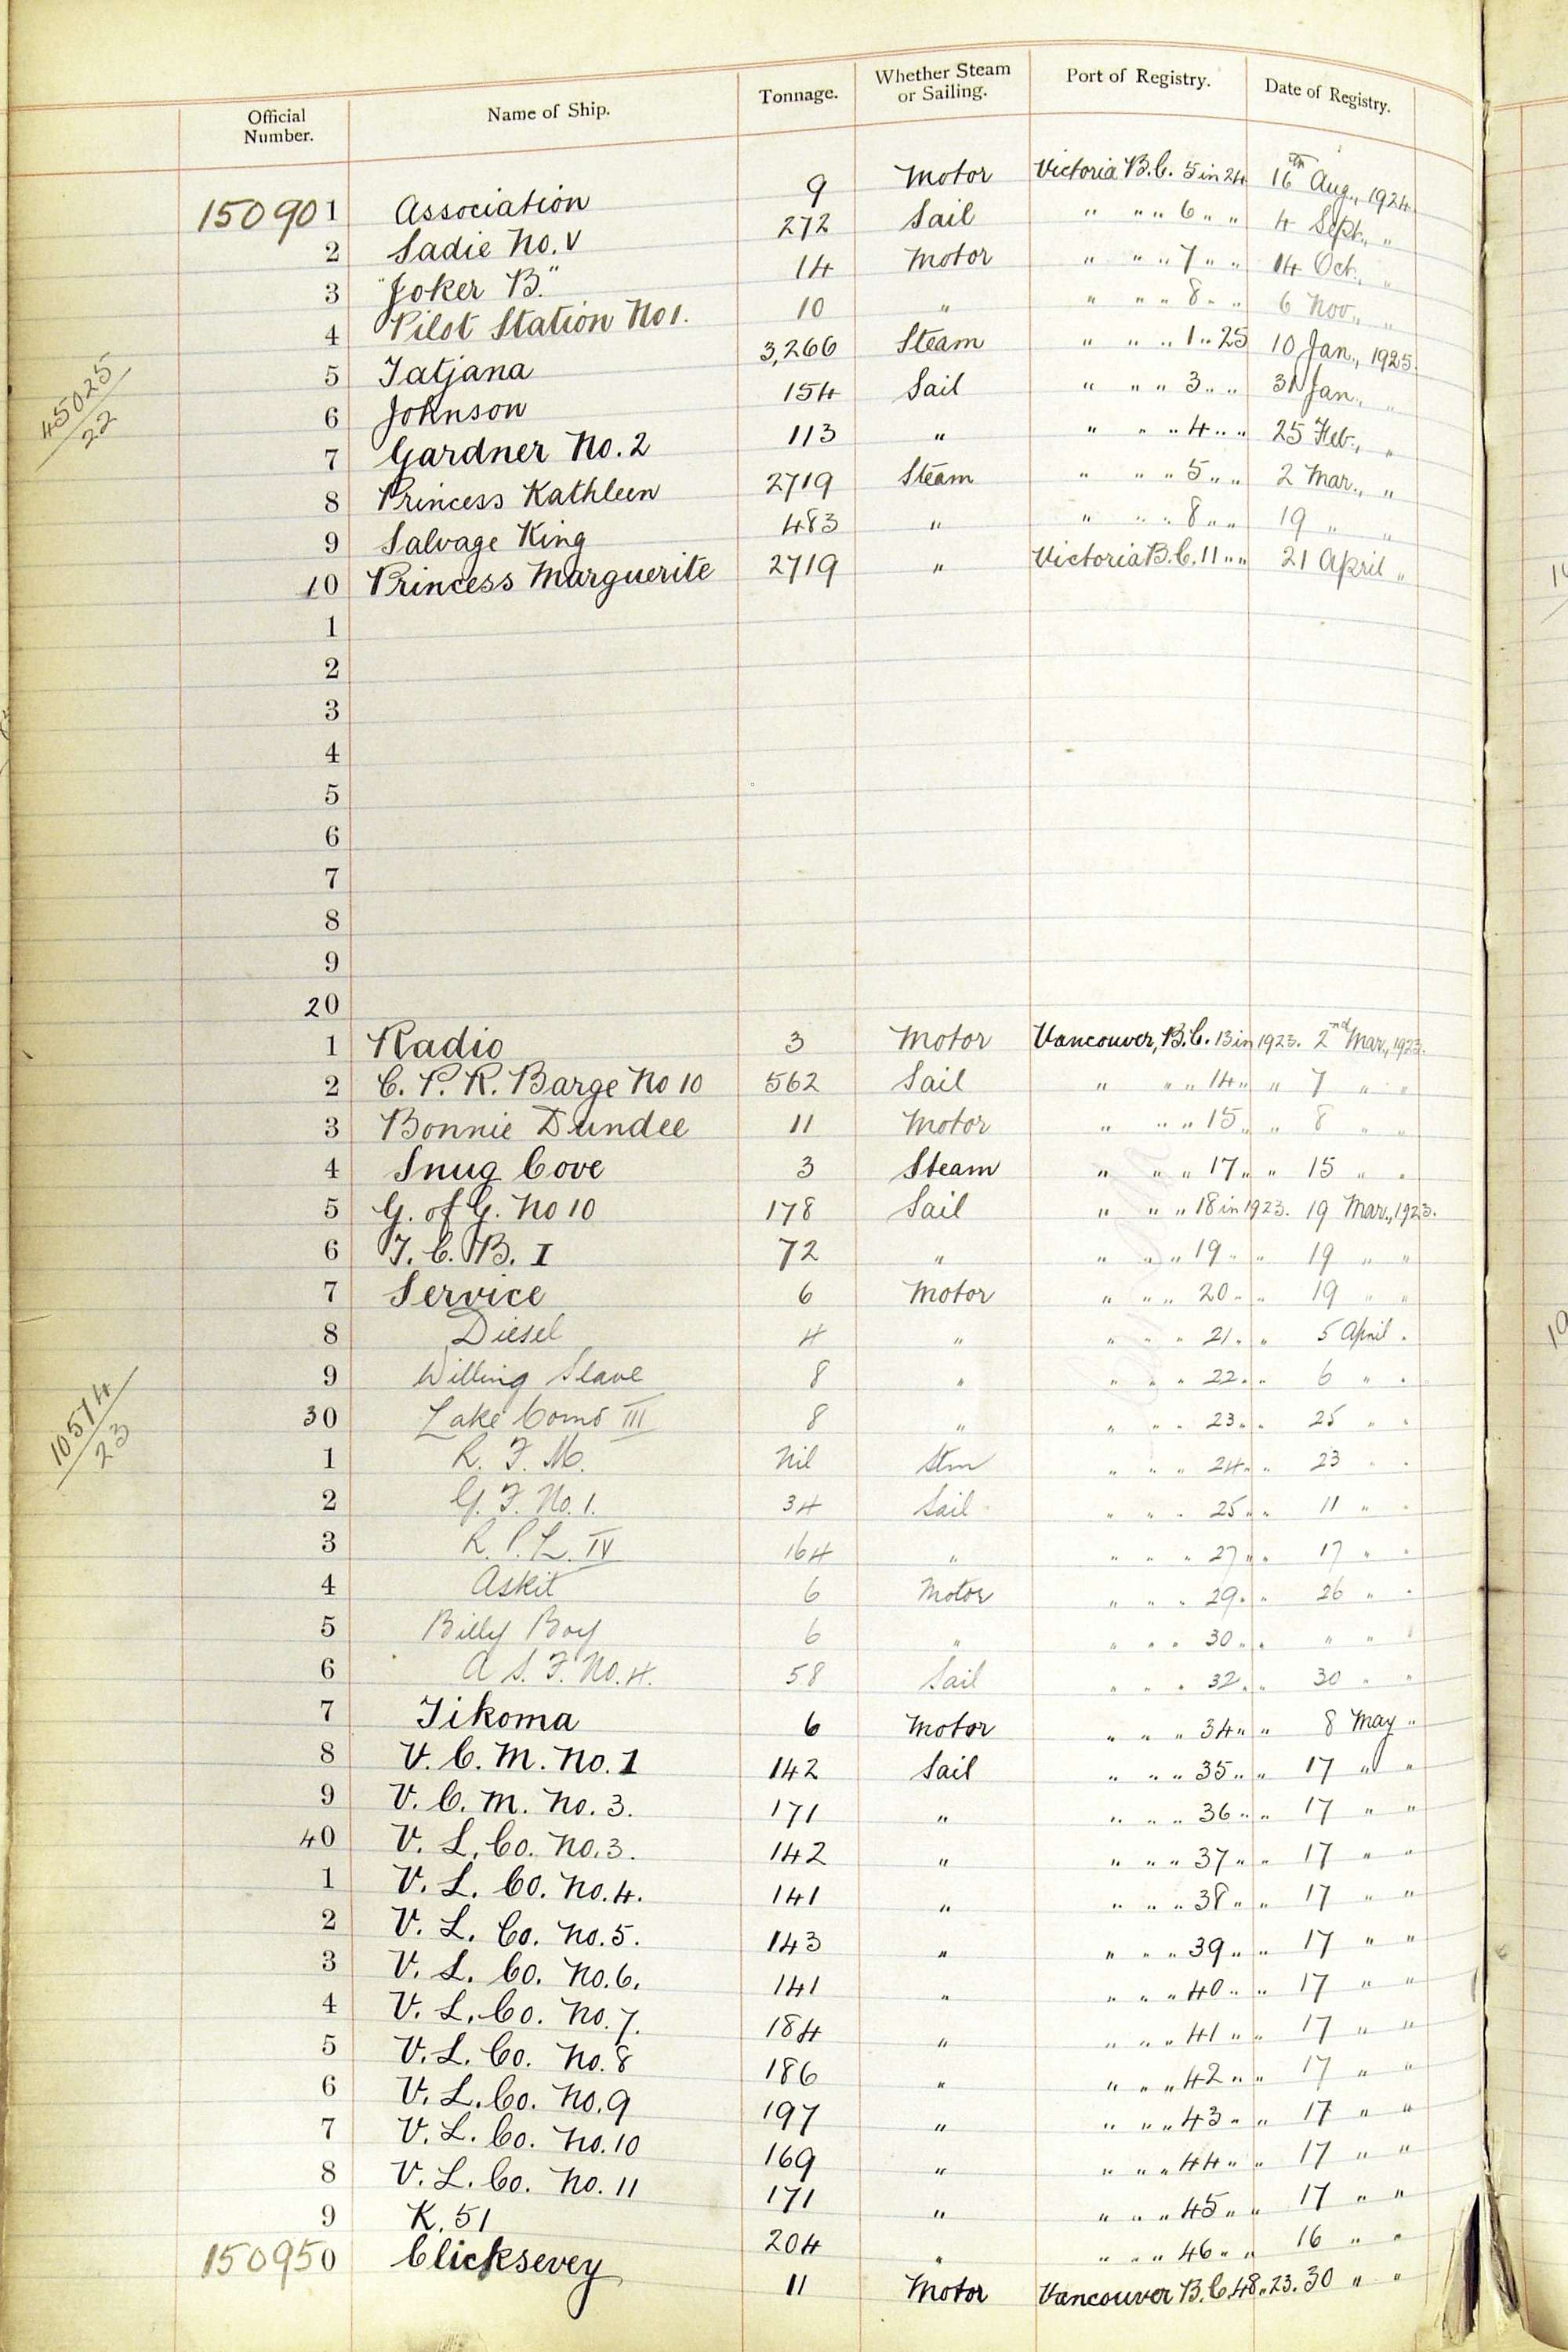 Official Number. Name of Ship. Tonnage. Whether Steam or Sailing. Port of Registry. Date of Registry.
150901 Association 9 Motor Victoria B.C. 5 in 24 16th Aug., 1924.
2 Sadie No. V 272 Sail " " " 6 " " 4 Sept., "
3 "Joker B." 14 Motor " " " 7 " " 14 Oct., "
4 Pilot Station No 1. 10 " " " " 8 " " 6 Nov., "
45025/22
5 Tatjana 3,266 Steam " " " 1 " 25 10 Jan., 1925.
6 Johnson 154 Sail " " " 3 " " 31 Jan., "
7 Gardner No. 2 113 " " " " 4 " " 25 Feb., "
8 Princess Kathleen 2719 Steam " " " 5 " " 2 Mar., "
9 Salvage King 483 " " " " 8 " " 19 " "
10 Princess Marguerite 2719 " Victoria B.C. 11 " " 21 April "
1
2
3
4
5
6
7
8
9
20
1 Radio 3 Motor Vancouver, B.C. 13 in 1923. 2nd Mar., 1923.
2 C. P. R. Barge No 10 562 Sail " " " 14 " " 7 " "
3 Bonnie Dundee 11 Motor " " " 15 " " 8 " "
4 Snug Cove 3 Steam " " " 17 " " 15 " "
5 G. of G. No 10 178 Sail " " " 18 in 1923. 19 Mar., 1923.
6 T. C. B. I 72 " " " " 19 " " 19 " "
7 Service 6 Motor " " " 20 " " 19 " "
8 Diesel 4 " " " " 21 " " 5 April "
9 Willing Slave 8 " " " " 22 " " 6 " "
10574/23
30 Lake Como III 8 " " " " 23 " " 25 " "
1 R. F. M. Nil Stm " " " 24 " " 23 " "
2 G. F. No. 1. 34 Sail " " " 25 " " 11 " "
3 R. P. L. IV 164 " " " " 27 " " 17 " "
4 Askit 6 Motor " " " 29 " " 26 " "
5 Billy Boy 6 " " " " 30 " " " " "
6 A S. F. No. 4. 58 Sail " " " 32 " " 30 " "
7 Tikoma 6 Motor " " " 34 " " 8 May "
8 V. C. M. No. 1 142 Sail " " " 35 " " 17 " "
9 V. C. M. No. 3. 171 " " " " 36 " " 17 " "
40 V. L. Co. No. 3. 142 " " " " 37 " " 17 " "
1 V. L. Co. No. 4. 141 " " " " 38 " " 17 " "
2 V. L. Co. No. 5. 143 " " " " 39 " " 17 " "
3 V. L. Co. No. 6. 141 " " " " 40 " " 17 " "
4 V. L. Co. No. 7. 184 " " " " 41 " " 17 " "
5 V. L. Co. No. 8 186 " " " " 42 " " 17 " "
6 V. L. Co. No. 9 197 " " " " 43 " " 17 " "
7 V. L. Co. No. 10 169 " " " " 44 " " 17 " "
8 V. L. Co. No. 11 171 " " " " 45 " " 17 " "
9 K. 51 204 " " " " 46 " " 16 " "
150950 Clicksevey 11 Motor Vancouver B.C. 48 " 23. 30 " "